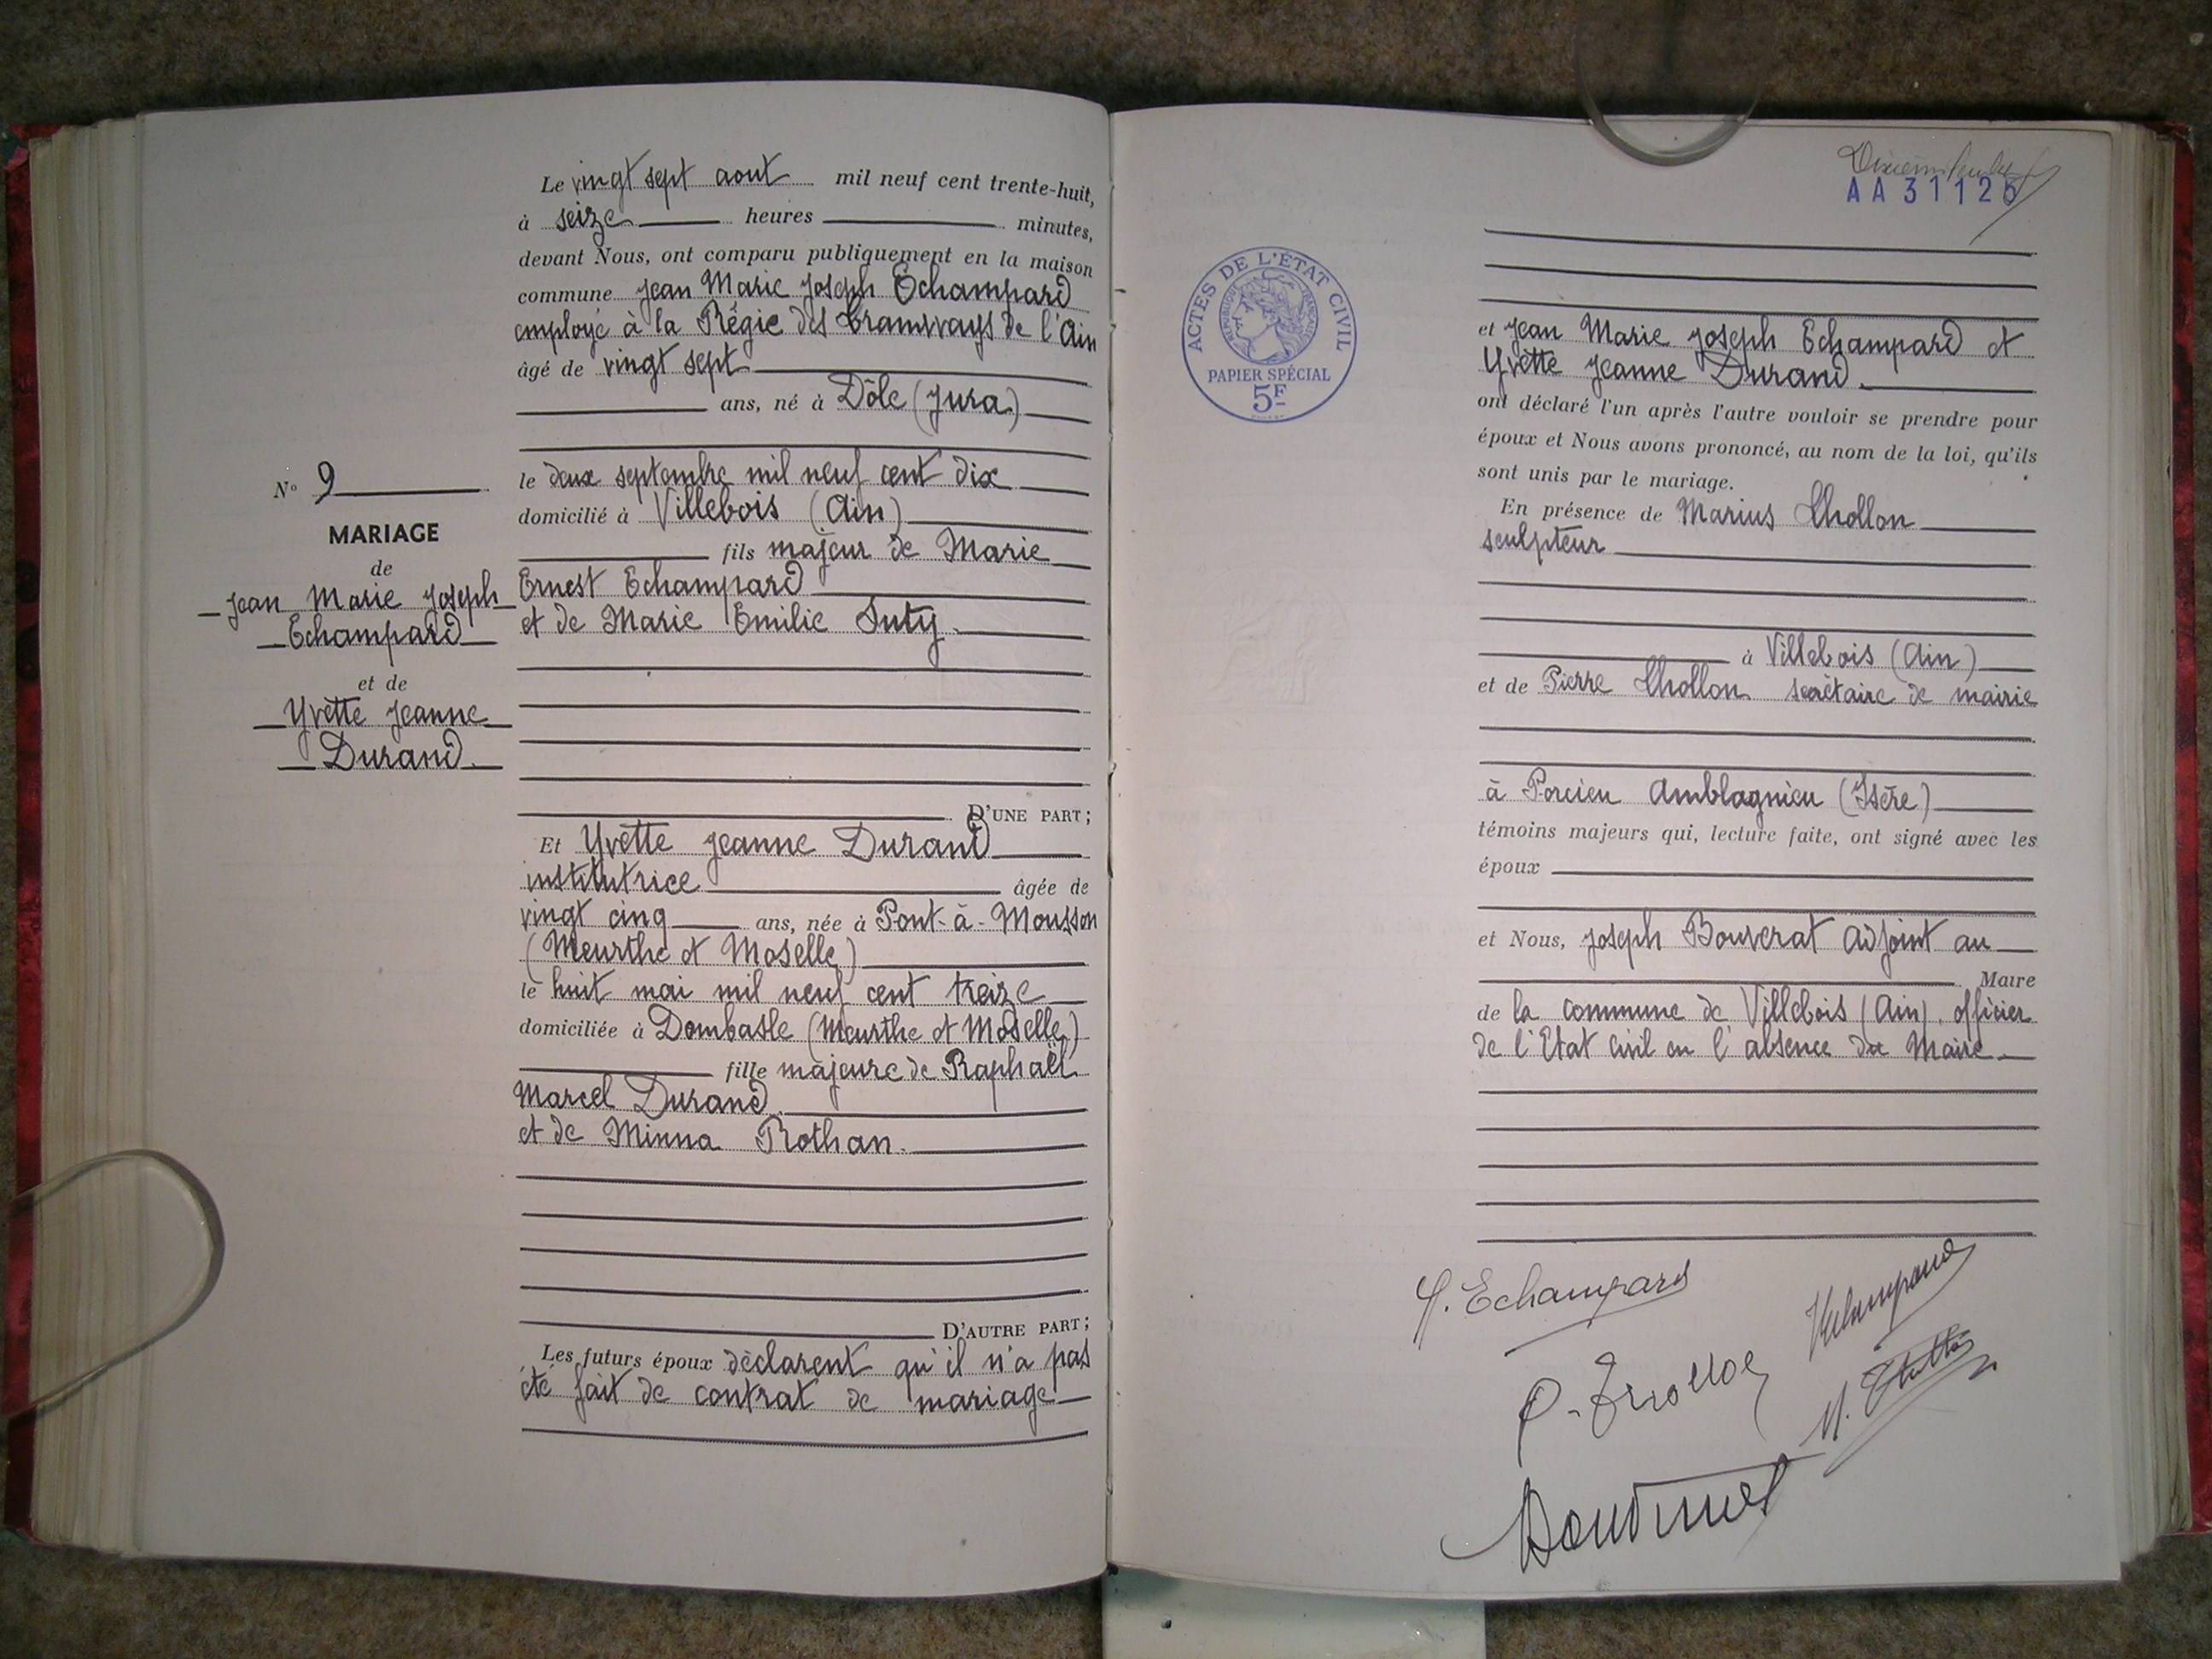 Le vingt sept aout mil neuf cent trente-huit,
à seize heures minutes,
devant Nous, ont comparu publiquement en la maison
commune Jean Marie Joseph Echampard
employé à la Régie des tramways de l'Ain
âgé de vingt sept
ans, né à Dôle (Jura)
le deux septembre mil neuf cent dix
domicilié à Villebois (Ain)
fils majeur de Marie
Ernest Echampard
et de Marie Emilie Suty.
D'UNE PART;
Et Yvette Jeanne Durand
institutrice âgée de
vingt cinq ans, née à Pont-à-Mousson
(Meurthe et Moselle)
le huit mai mil neuf cent treize
domiciliée à Dombasle (Meurthe et Moselle)
fille majeure de Raphaël
Marcel Durand
et de Minna Rothan.
D'AUTRE PART;
Les futurs époux déclarent qu'il n'a pas
été fait de contrat de mariage
N° 9
MARIAGE
de
Jean Marie Joseph
Echampard
et de
Yvette Jeanne
Durand.
AA31125
ACTES DE L'ÉTAT CIVIL
RÉPUBLIQUE FRANÇAISE
PAPIER SPÉCIAL
5F
et Jean Marie Joseph Echampard et
Yvette Jeanne Durand.
ont déclaré l'un après l'autre vouloir se prendre pour
époux et Nous avons prononcé, au nom de la loi, qu'ils
sont unis par le mariage.
En présence de Marius Chollon
sculpteur
à Villebois (Ain)
et de Pierre Chollon secrétaire de mairie
à Porcieu Amblagnieu (Isère)
témoins majeurs qui, lecture faite, ont signé avec les
époux
et Nous, Joseph Bouverat adjoint au
Maire
de la commune de Villebois (Ain), officier
de l'Etat civil en l'absence du Maire
J. Echampard